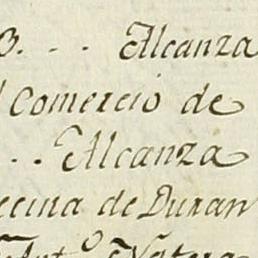 3. . . Alcanza
l Comercio de
. . Alcanza
ecina de Duran
Ant.º Natera